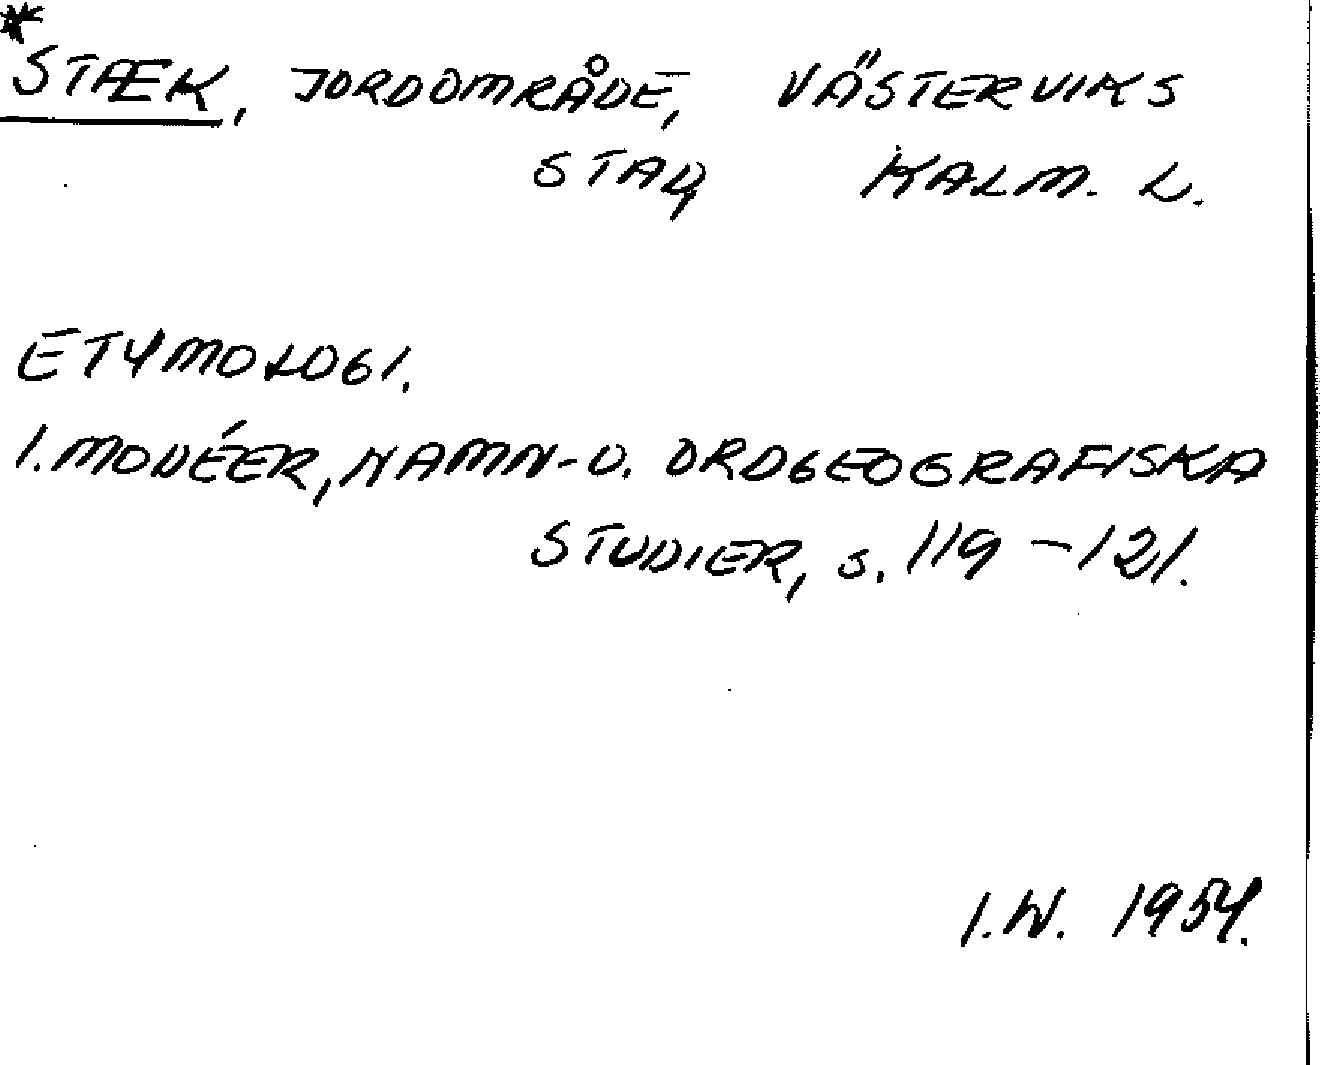 *STÆK, JORDOMRÅDE, VÄSTERVIKS
STAD, KALM. L.
ETYMOLOGI.
I. MODÉER, NAMN- O. ORDGEOGRAFISKA
STUDIER, S. 119-121.
I.W. 1954.